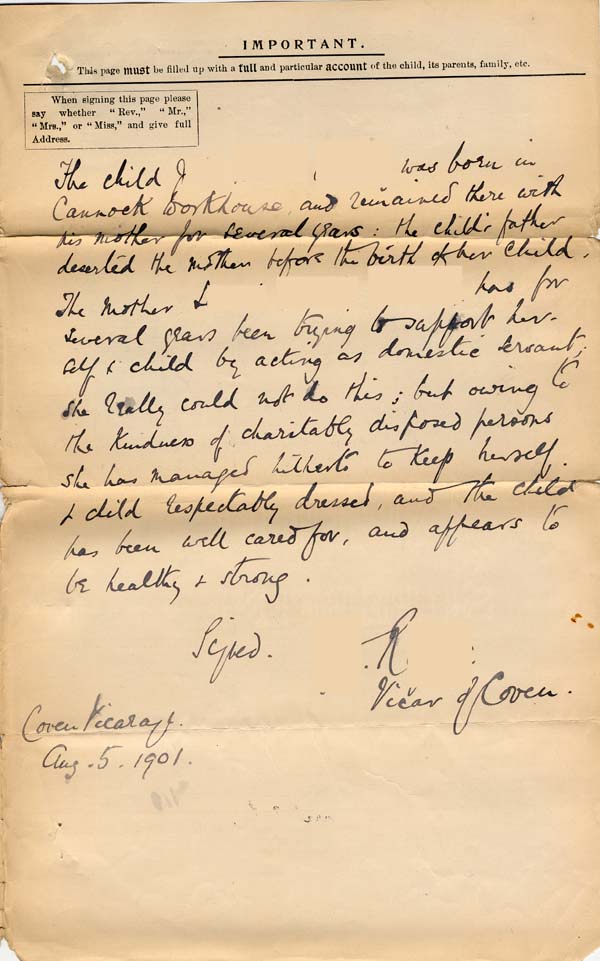 IMPORTANT.
This page must be filled up with a full and particular account of the child, its parents, family, etc.
When signing this page please
say whether "Rev.," "Mr.,"
"Mrs.," or "Miss," and give full
Address.
The child J was born in
Cannock Workhouse, and remained there with
his mother for several years: the child's father
deserted the mother before the birth of her child.
The mother L has for
several years been trying to support her-
self & child by acting as domestic servant;
she really could not do this; but owing to
the kindness of charitably disposed persons
she has managed hitherto to keep herself
& child respectably dressed, and the child
has been well cared for, and appears to
be healthy & strong.
Signed. R
Vicar of Coven.
Coven Vicarage.
Aug. 5. 1901.